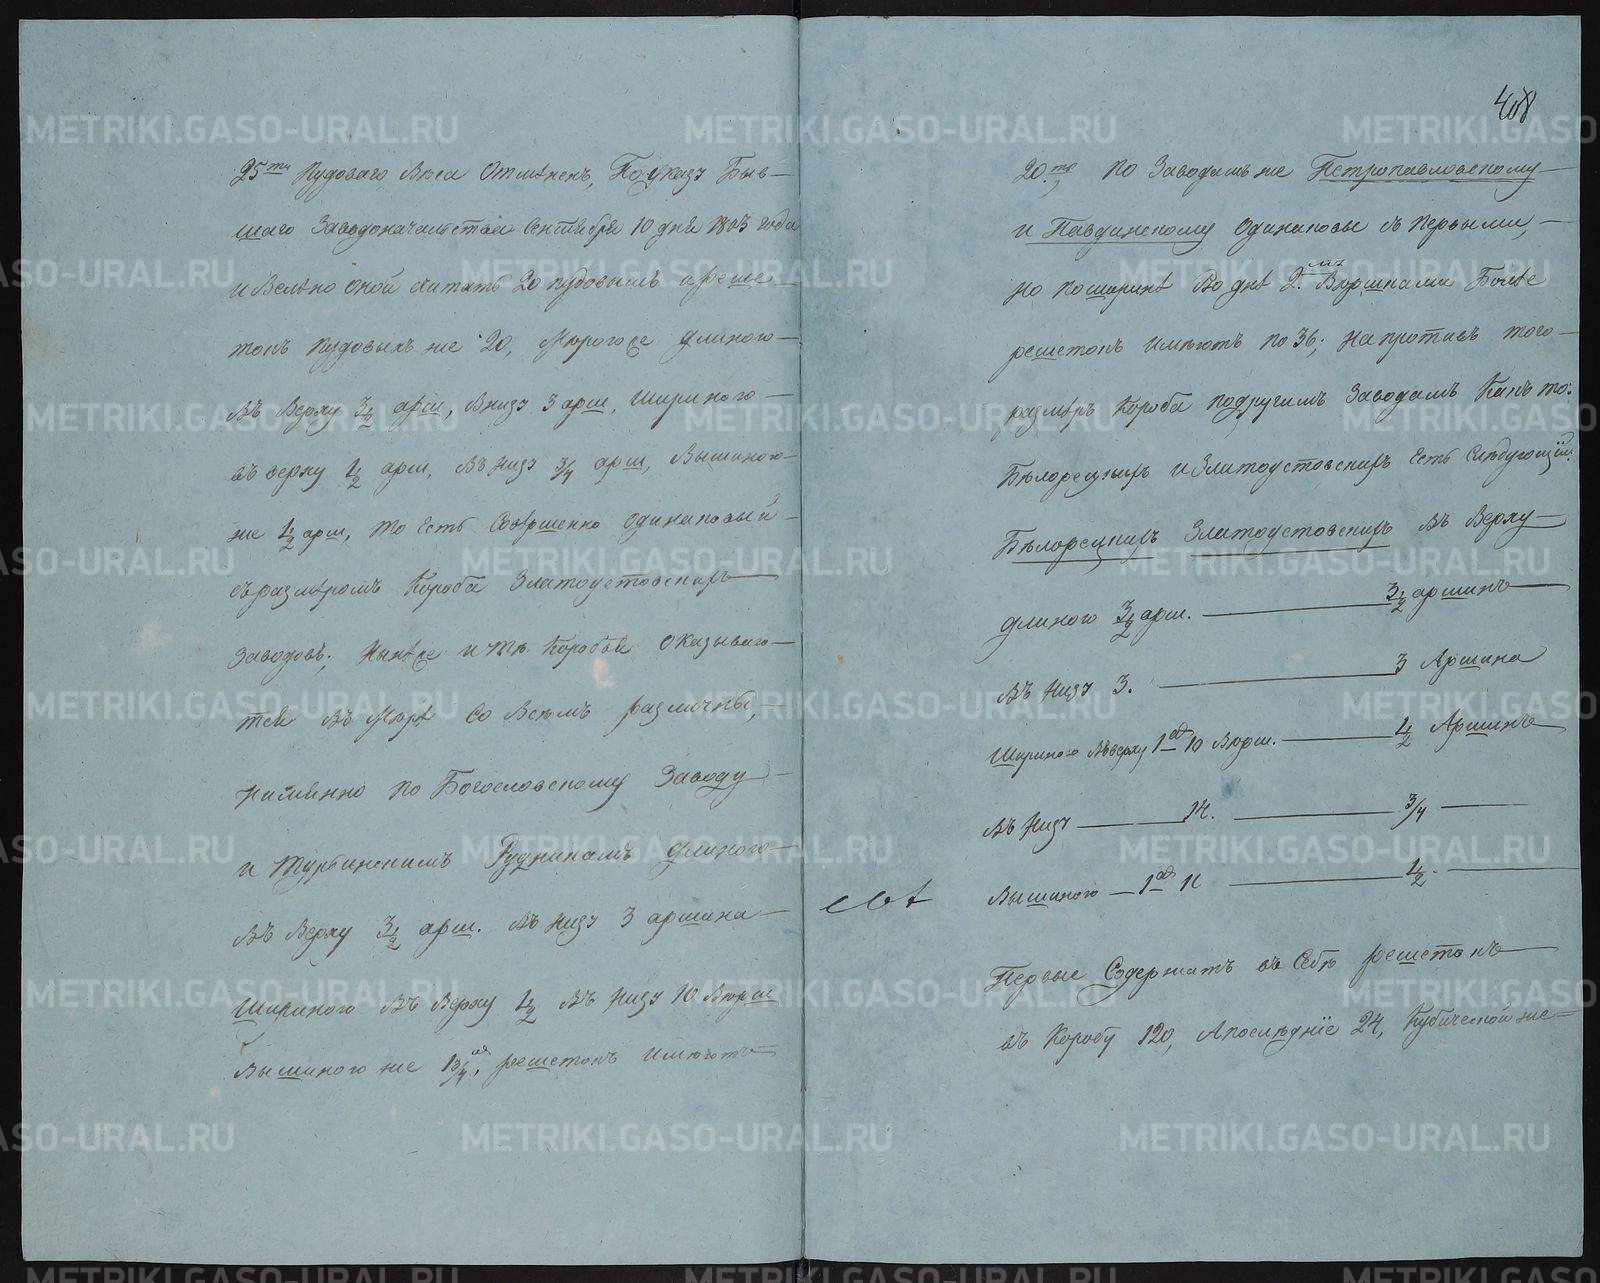 25ти пудоваго вѣса отмѣненъ, По указу быв-
шаго Заводоначальства Сентября 10 дня 1803 года
и велѣно оной считать 20 пудовымъ и реше-
токъ пудовыхъ же 20, мѣрою же длиною
въ верху 3 1/2 арш, внизу 3 арш, шириною
въ верху 1 1/2 арш, въ низу 3/4 арш, вышиною
же 1 1/2 арш, то есть совершенно одинаковый
съ размѣромъ короба Златоустовскихъ
заводовъ; нынѣ же и тѣ коробья оказываю-
тся въ мѣрѣ со всѣмъ различны,
наимянно по Богословскому заводу
и Турьинскимъ Рудникамъ длиною
въ верху 3 1/2 арш. въ низу 3 аршина
шириною въ верху 1 1/2 въ низу 10 верш
вышиною же 1 3/4, решетокъ имеютъ
408
20.ть, по заводамъ же Петропавловскому
и Павдинскому одинаковы съ первыми,
но по ширинѣ во днѣ 2.мя вершками болѣе
решетокъ имѣютъ по 36; на противъ того
размѣръ короба по другимъ заводамъ как то:
Бѣлорецкихъ и Златоустовскихъ есть слѣдующій:
Бѣлорецкихъ Златоустовскихъ въ верху
длиною 3 1/2 арш. 3 1/2 аршинъ
въ низу 3. 3 аршина
шириною въ верху 1 10 верш. 1 1/2 аршинъ
въ низу 14. 3/4
вышиною 1 1 1/2.
Первые содержатъ въ себѣ решетокъ
въ коробу 120, а последніе 24, кубической же
METRIKI.GASO-URAL.RU